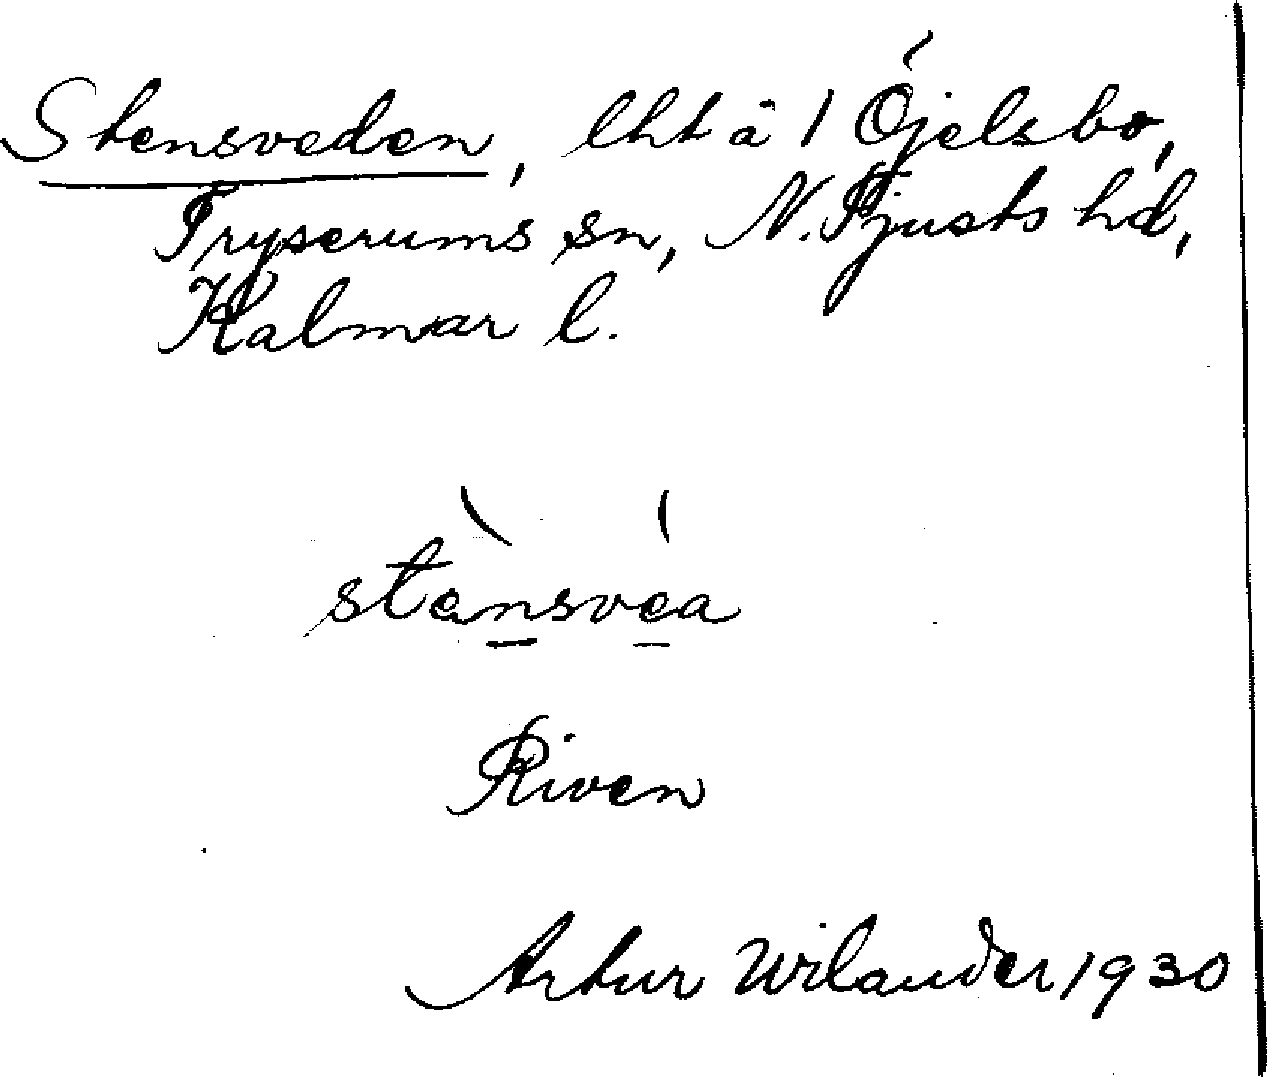 Stensveden, lht å 1 Öjelsbo,
Tryserums sn, N. Tjusts hd,
Kalmar l.
stènsvéa
Riven
Artur Wilander 1930